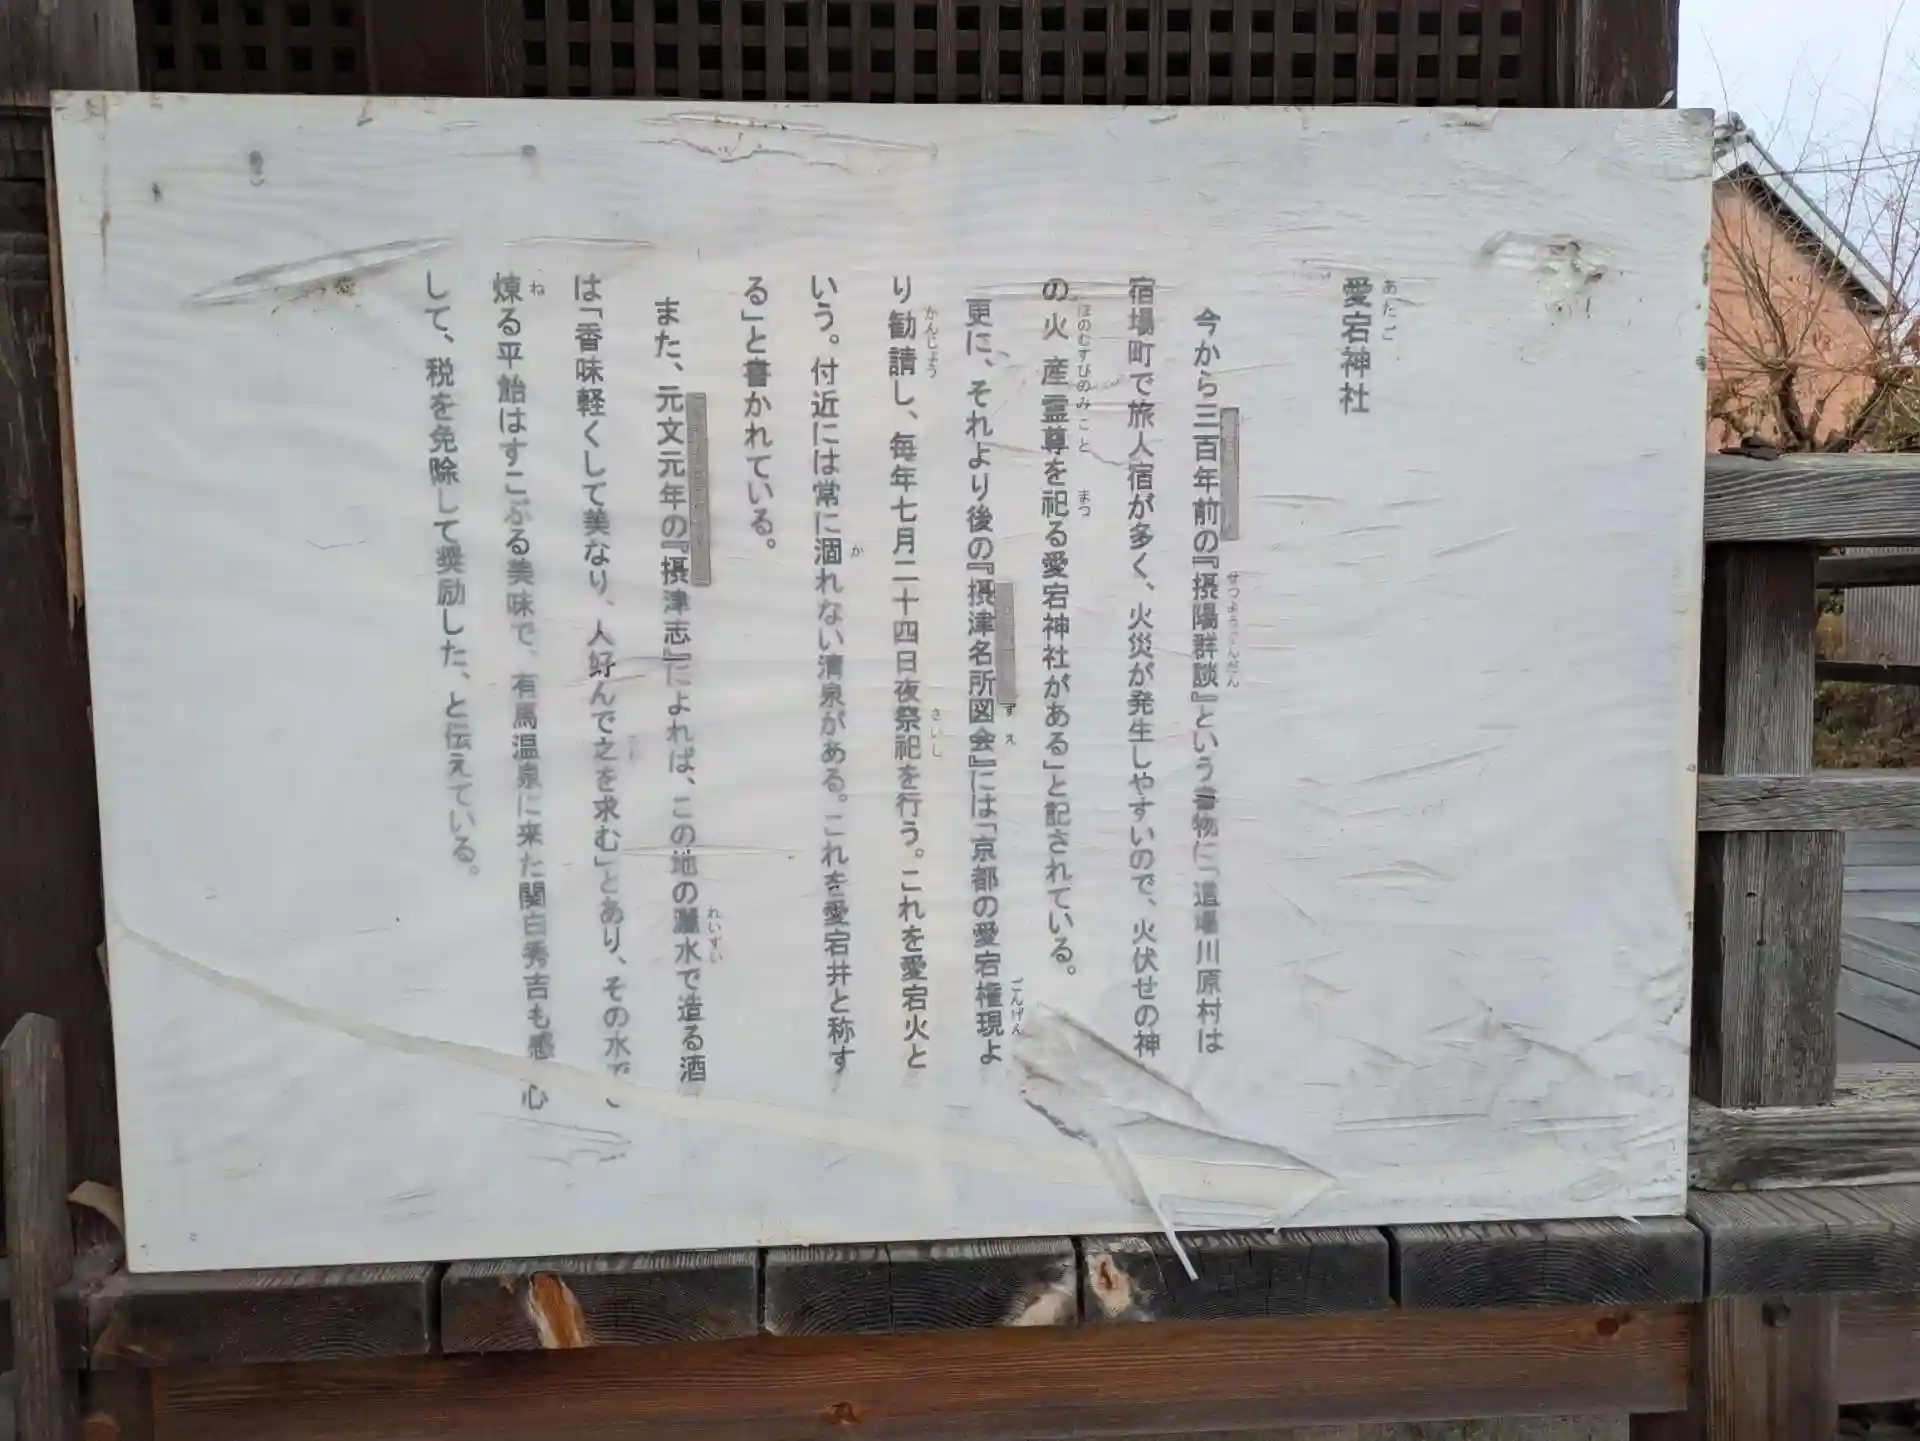 愛宕神社
今から三百年前の『摂陽群談』という書物に「道場川原村は
宿場町で旅人宿が多く、火災が発生しやすいので、火伏せの神
の火産霊尊を祀る愛宕神社がある」と記されている。
更に、それより後の『摂津名所図会』には「京都の愛宕権現よ
り勧請し、毎年七月二十四日夜祭祀を行う。これを愛宕火と
いう。付近には常に涸れない清泉がある。これを愛宕井と称す
る」と書かれている。
また、元文元年の『摂津志』によれば、この地の灑水で造る酒
は「香味軽くして美なり、人好んで之を求む」とあり、その水で、
煉る平飴はすこぶる美味で、有馬温泉に来た関白秀吉も感心
して、税を免除して奨励した、と伝えている。